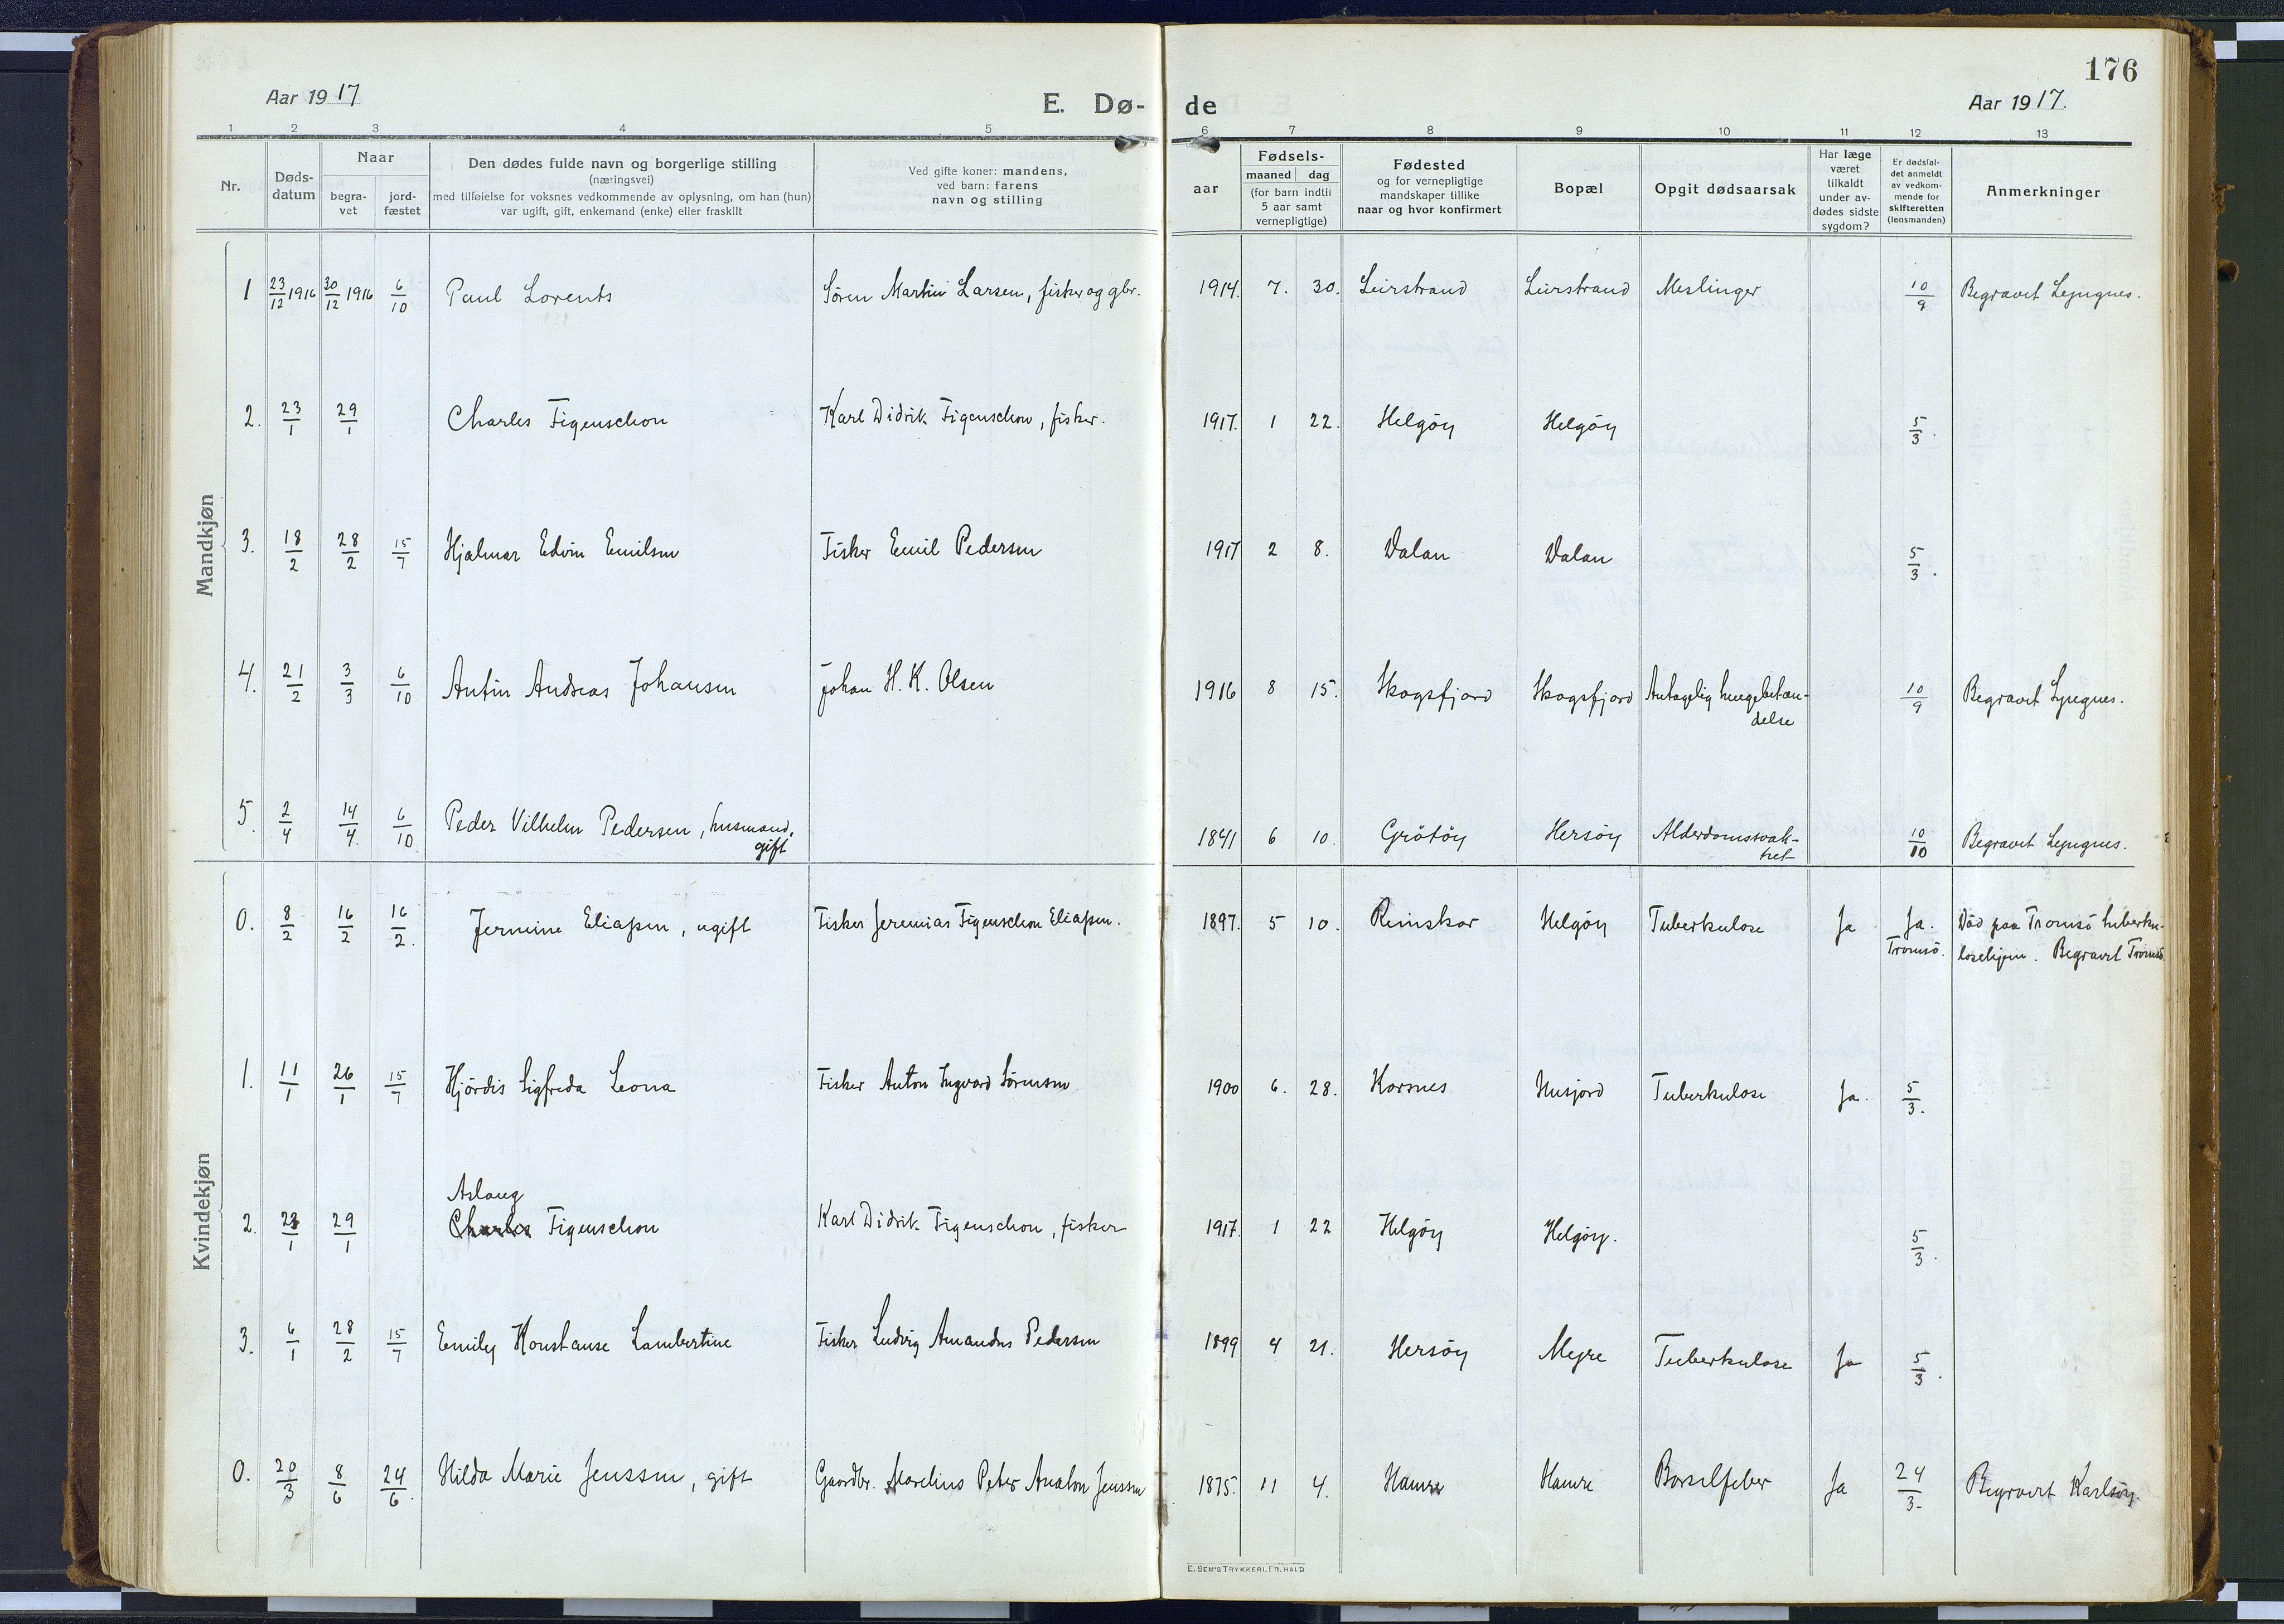 176
Aar 1917 E. Dø- de Aar 1917.
1 2 3 4 5 6 7 8 9 10 11 12 13
Nr.
Døds-
datum
Naar
begra-
vet
jord-
fæstet
Den dødes fulde navn og borgerlige stilling
(næringsvei)
med tilføielse for voksnes vedkommende av oplysning, om han (hun)
var ugift, gift, enkemand (enke) eller fraskilt
Ved gifte koner: mandens,
ved barn: farens
navn og stilling
aar
Fødsels-
maaned dag
(for barn indtil
5 aar samt
vernepligtige)
Fødested
og for vernepligtige
mandskaper tillike
naar og hvor konfirmert
Bopæl
Opgit dødsaarsak
Har læge
været
tilkaldt
under av-
dødes sidste
sygdom?
Er dødsfal-
det anmeldt
av vedkom-
mende for
skifteretten
(lensmanden)
Anmerkninger
Mandkjøn
1 23/12 1916 30/12 1916 6/10 Paul Lorents Søren Martin Larsen, fisker og gbr. 1914. 7. 30. Leirstrand Leirstrand Meslinger 10/9 Begravet Lyngnes.
2. 23/1 29/1 Charles Figenschou Karl Didrik Figenschou, fisker. 1917. 1 22. Helgöy Helgöy 5/3.
3. 18/2 28/2 15/7 Hjalmar Edvin Emilsen Fisker Emil Pedersen 1917 2 8. Dalan Dalan 5/3.
4. 21/2 3/3 6/10 Antin Andreas Johansen Johan H. K. Olsen 1916 8 15. Skogsfjord Skogsfjord Antagelig lungebetæn-
delse 10/9 Begravet Lyngnes.
5. 2/4 14/4. 6/10. Peder Vilhelm Pedersen, husmand,
gift 1841 6 10. Grötöy Hersöy Alderdomssvak-
het 10/10 Begravet Lyngnes.
Kvindekjøn
0. 8/2 16/2 16/2. Jermine Eliassen, ugift Fisker Jeremias Figenschou Eliassen. 1897. 5 10. Reinskar Helgöy Tuberkulose Ja Ja.
Tromsö. Död paa Tromsö tuberku-
losehjem. Begravet Tromsö.
1. 11/1 26/1 15/7 Hjördis Sigfreda Leona Fisker Anton Ingvard Sörensen 1900 6. 28. Korsnes Husjord Tuberkulose Ja. 5/3.
Aslaug
2. 23/1 29/1 Charles Figenschou Karl Didrik Figenschou, fisker 1917. 1 22 Helgöy Helgöy. 5/3.
3. 6/1 28/2 15/7 Emily Konstanse Lambertine Fisker Ludvig Amandus Pedersen 1899 4 21. Hersöy Mejre Tuberkulose Ja 5/3.
0. 20/3 8/6 24/6. Hilda Marie Jenssen, gift Gaardbr. Marelius Peter Anaton Jenssen 1875. 11 4. Hamre Hamre Barselfeber Ja 24/3- Begravet Karlsöy.
E. SEM'S TRYKKERI, FR.HALD